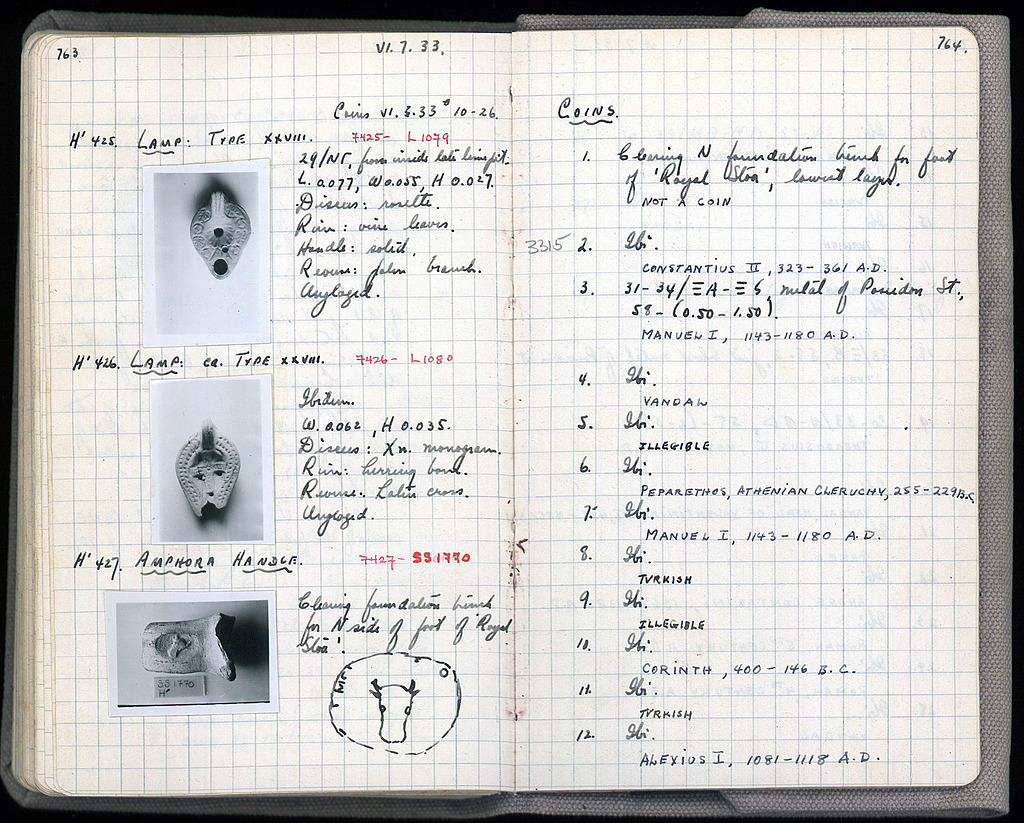 763
VI. 7. 33.
Coins VI. 5. 33 # 10-26.
H' 425. LAMP: TYPE XXVIII. 7425- L 1079
29/ΝΓ, from inside late lime pit.
L. 0.077, W 0.055, H 0.027.
Discus: rosette.
Rim: vine leaves.
Handle: solid.
Reverse: palm branch.
Unglazed.
H' 426. LAMP: ca. TYPE XXVIII. 7426- L 1080
Ibidem.
W. 0.062, H 0.035.
Discus: Xn. monogram.
Rim: herring bone.
Reverse: Latin cross.
Unglazed.
H' 427. AMPHORA HANDLE. 7427- SS 1770
Clearing foundation trench
for N side of foot of 'Royal
Stoa'.
SS 1770
H'
764.
COINS.
1. Clearing N foundation trench for foot
of 'Royal Stoa', lowest layer.
NOT A COIN
3315 2. Ibi.
CONSTANTIUS II, 323-361 A.D.
3. 31-34/ΞΑ-Ξς, metal of Poseidon St.,
58-(0.50-1.50).
MANUEL I, 1143-1180 A.D.
4. Ibi.
VANDAL
5. Ibi.
ILLEGIBLE
6. Ibi.
PEPARETHOS, ATHENIAN CLERUCHY, 255-229 B.C.
7. Ibi.
MANUEL I, 1143-1180 A.D.
8. Ibi.
TURKISH
9. Ibi.
ILLEGIBLE
10. Ibi.
CORINTH, 400-146 B.C.
11. Ibi.
TURKISH
12. Ibi.
ALEXIUS I, 1081-1118 A.D.